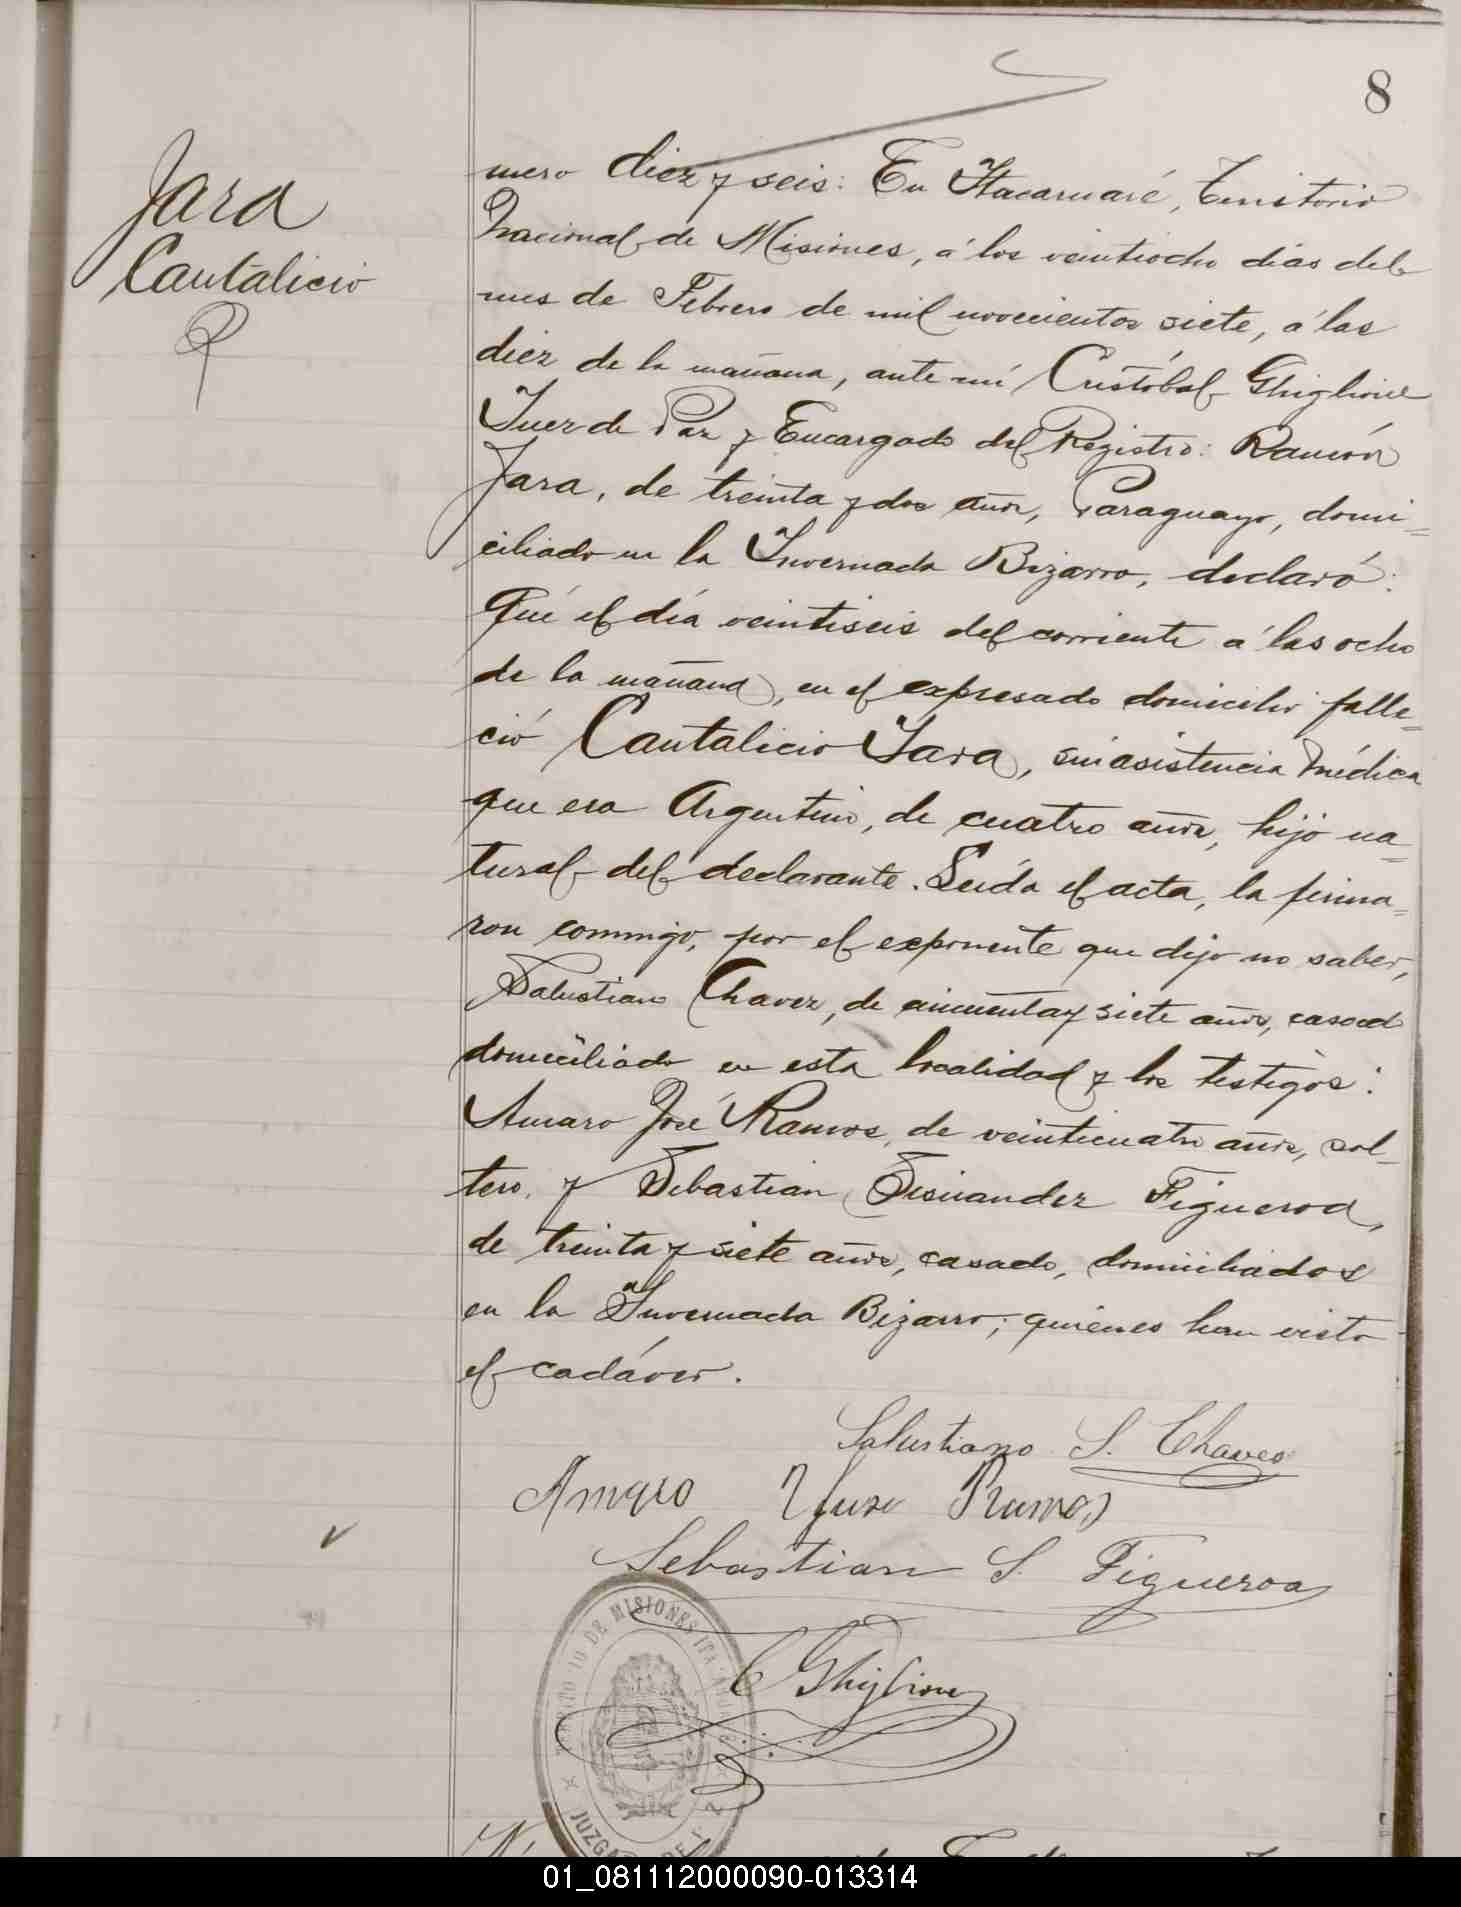 8
Jara
Cantalicio
mero diez y seis: En Itacaruaré, Territorio
Nacional de Misiones, á los veintiocho dias del
mes de Febrero de mil novecientos siete, á las
diez de la mañana, ante mí Cristóbal Ghiglione
Juez de Paz y Encargado del Registro: Ramón
Jara, de treinta y dos años, Paraguayo, domi=
ciliado en la Invernada Bizarro, declaró:
Que el día veintiseis del corriente á las ocho
de la mañana, en el expresado domicilio falle=
ció Cantalicio Jara, sin asistencia médica
que era Argentino, de cuatro años, hijo na=
tural del declarante. Leída el acta, la firma=
ron conmigo, por el exponente que dijo no saber,
Salustiano Chavez, de cincuenta y siete años, casado
domiciliado en esta localidad y los testigos:
Amaro José Ramos, de veinticuatro años, sol-
tero, y Sebastian Figueroa,
de treinta y siete años, casado, domiciliados
en la Invernada Bizarro; quienes han visto
el cadáver.
Salustiano S. Chaves
Amaro Ramos
Sebastian S. Figueroa
C Ghiglione
DE MISIONES
JUZGA
01_081112000090-013314